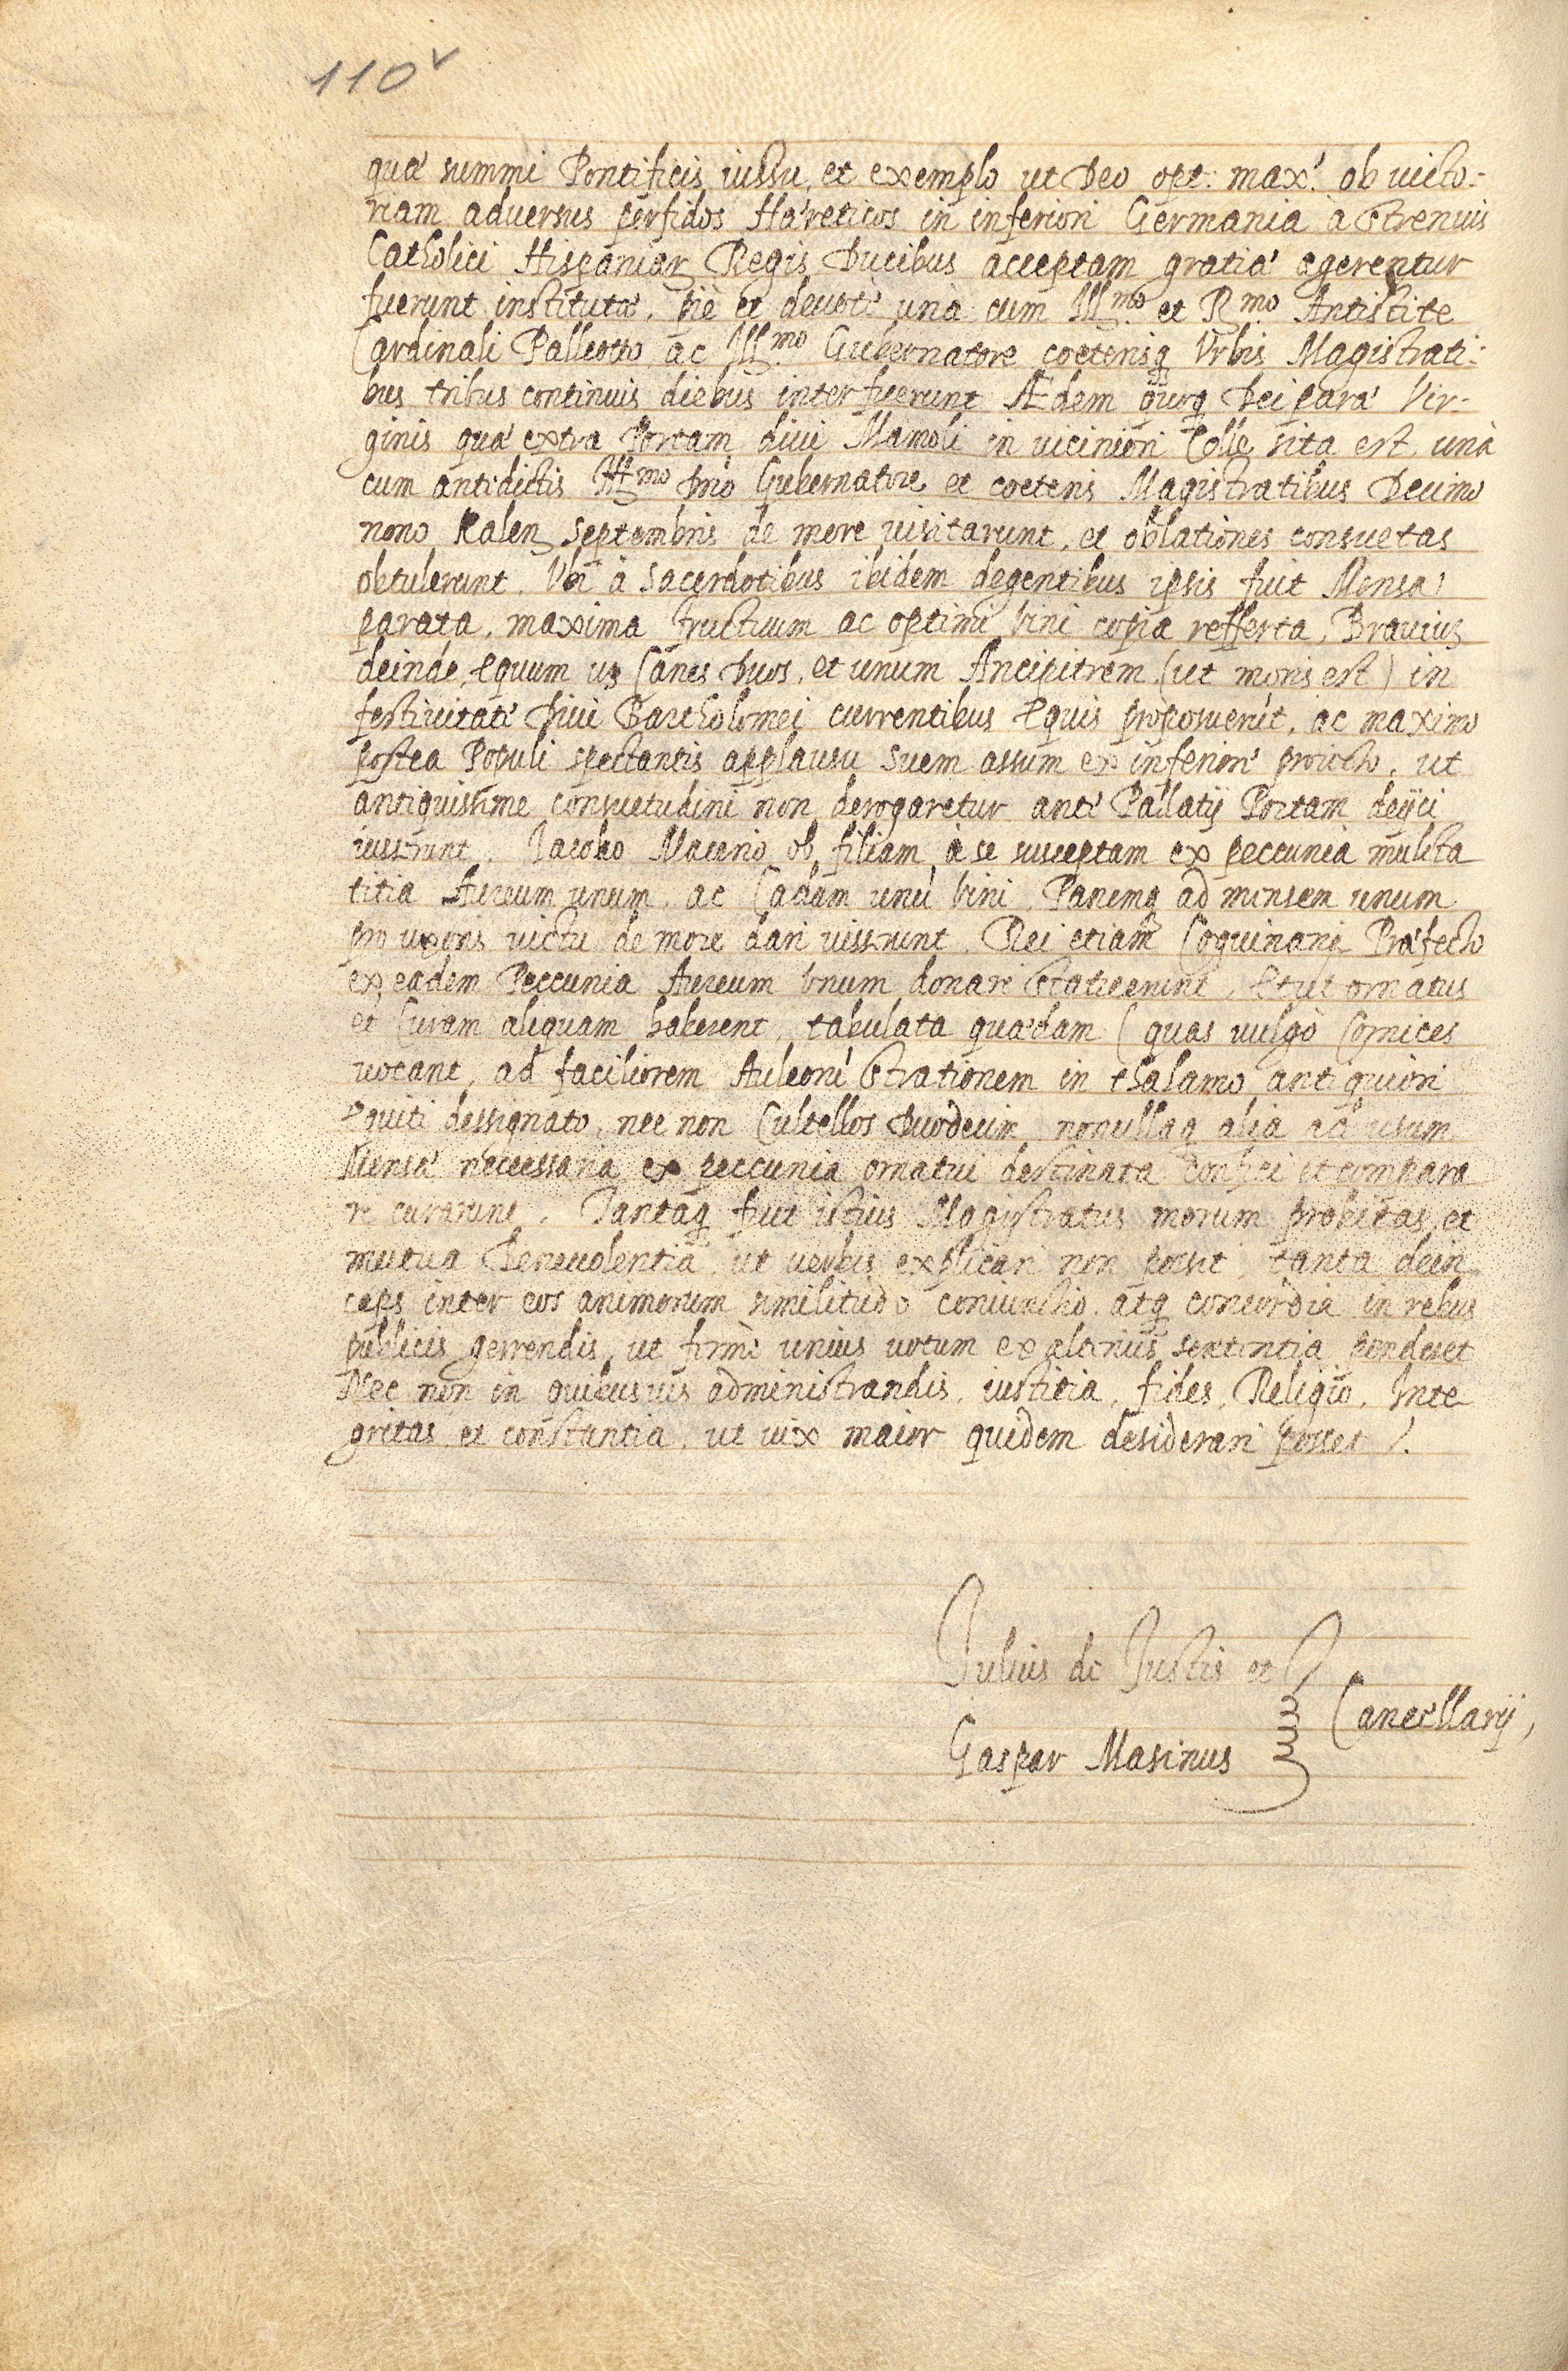 110v
quæ summi Pontificis iussu, et exemplo ut Deo opt: max: ob uicto:
riam aduersus perfidos Hæreticos in inferiori Germania à strenuis
Catholici Hispaniar Regis Ducibus acceptam gratiæ agerentur
fuerunt institutæ, piè et deuotè unà cum Illmo et Rmo Antistite
Cardinali Palleotto, ac Illmo Gubernatore coeterisq Vrbis Magistrati:
bus tribus continuis diebus interfuerunt Ædem quoq Deiparæ Vir-
ginis quæ extra Portam diui Mamoli in uiciniori Colle sita est unà
cum antidictis Illmo Dno Gubernatore et coeteris Magistratibus Decimo
nono Kalen Septembris de more uisitarunt, et oblationes consuetas
obtulerunt. Vbi à Sacerdotibus ibidem degentibus ipsis fuit Mensa
parata, maxima fructuum ac optimi Vini copia refferta, Brauium
deinde, Equum us Canes Duos, et unum Ancipitrem (ut moris est) in
festiuitate Diui Bartholomei currentibus Equis proposuerut, ac maximo
postea Populi spectantis applausu Suem assum ex inferiore proiecto, ut
antiquissime consuetudini non derogaretur ante Pallatij Portam deijci
iusserunt. Jacobo Macerio ob filiam à se susceptam ex peccunia mulcta
titia Aureum unum, ac Cadum unu Vini, Panemq ad mensem unum
pro uxoris uictu de more dari iusserunt. Rei etiam Coquinarie Præfecto
ex eadem Peccunia Aureum Vnum donare statuerunt, Et ut ornatus
et Curam aliquam haberent, tabulata quædam (quas uulgò Cornices
uocant, ad faciliorem Auleorum Strationem in thalamo antiquiori
Equiti dessignato, nec non Cultellos Duodecim nonullaq alia ad usum
Mensæ necessaria ex peccunia ornatui destinata confici et compara
re curarunt. Tantaq fuit istius Magistratus morum probitas, et
mutua Beneuolentia, ut uerbis explicari non possit, tanta dein
ceps inter eos animorum similitudo coniunctio, atq concordia in rebus
publicis gerrendis, ut firmè unius uotum ex alterius sententia penderet
Nec non in quibusuis administrandis, iustitia, fides, Religio, Inte
gritas et constantia, ut uix maior quidem desiderari posset /.
Julius de Justis et
Cancellarij,
Gaspar Masinus